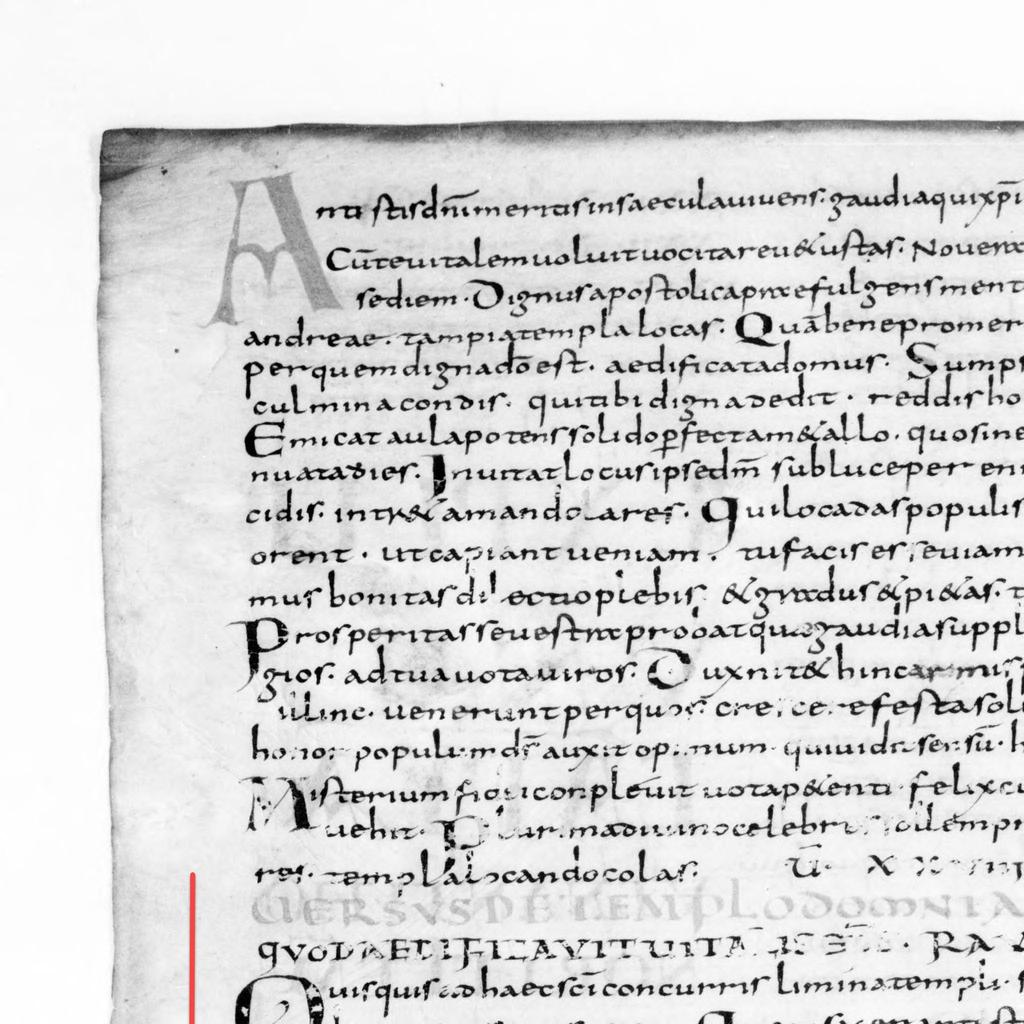 Antistis dn̄i meritis in saecula vivens. gaudia qui xp̄i
Cū te vitalem voluit vocitare v&ustas. Noverat
sediem. Dignus apostolica praefulgens ment
andreae. tam pia templa locas. Quā bene promer
per quem digna dō est. aedificata domus. Sumps
culmina condis. qui tibi digna dedit. reddis ho
Emicat aula potens solido perfecta m&allo. quo sine
nuata dies. Invitat locus ipse dm̄ sub luce perenn
cidis. intr& amando lares. Qui loca das populis
orent. ut capiant veniam. tu facis esse viam
mus bonitas dilectio plebis. &gradus &pi&as.
Prosperitas se vestra probat quae gaudia suppl
gios. ad tua vota viros. Dux nit& hinc armis
illinc. venerunt per quos crescere festa sol
honor populum ds̄ auxit opimum. qui vid
Misterium fidei conplevit vota p&enti. felix cu
vehit. celebr
res. templa locando colas. V̄. X
VERSUS DE TEMPLO DOMNI A
QUOD AEDIFICAVIT VITALIS
Quisquis ad haec sc̄i concurris limina templi.